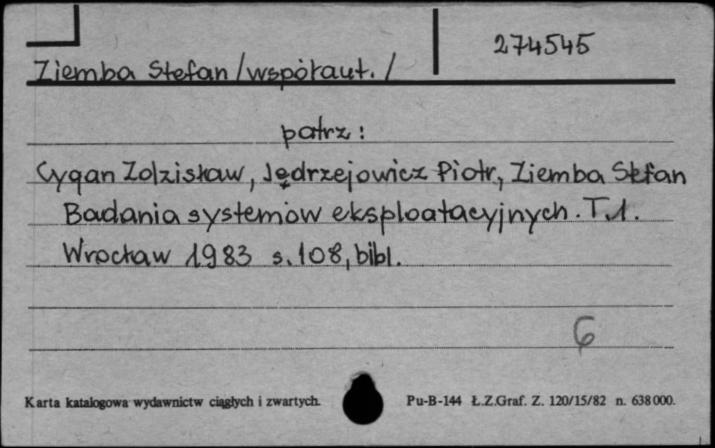 274545
Ziemba Stefan /współaut./
patrz:
Cygan Zdzisław, Jędrzejowicz Piotr, Ziemba Stefan
Badania systemów eksploatacyjnych. T.1.
Wrocław 1983 s. 108, bibl.
6
Karta katalogowa wydawnictw ciągłych i zwartych. Pu-B-144 Ł.Z.Graf. Z. 120/15/82 n. 638000.